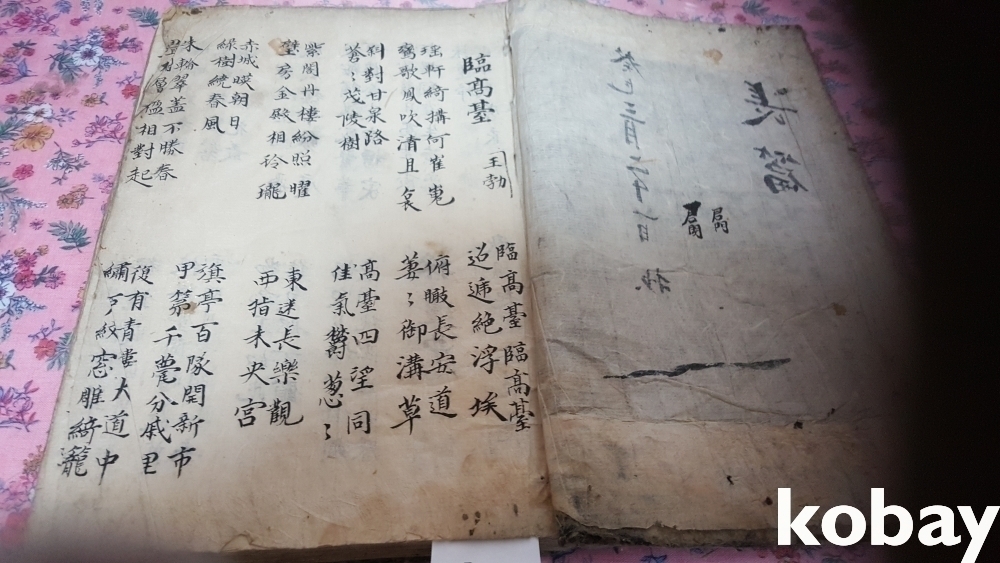 長篇
癸巳三月
抄
臨髙臺
王勃
臨髙臺臨髙臺
迢遞絕浮埃
瑤軒綺搆何崔嵬
鸞歌鳳吹清且哀
俯瞰長安道
萋〻御溝草
斜對甘泉路
蒼〻茂陵樹
髙臺四望同
佳氣欝葱〻
紫閣丹樓紛照曜
璧房金殿相玲瓏
東迷長樂觀
西指未央宮
赤城暎朝日
綠樹繞春風
旗亭百隊開新市
甲第千甍分戚里
朱輪翠盖不勝春
疊榭層楹相對起
復有青樓大道中
繡戶紋窓雕綺籠
kobay